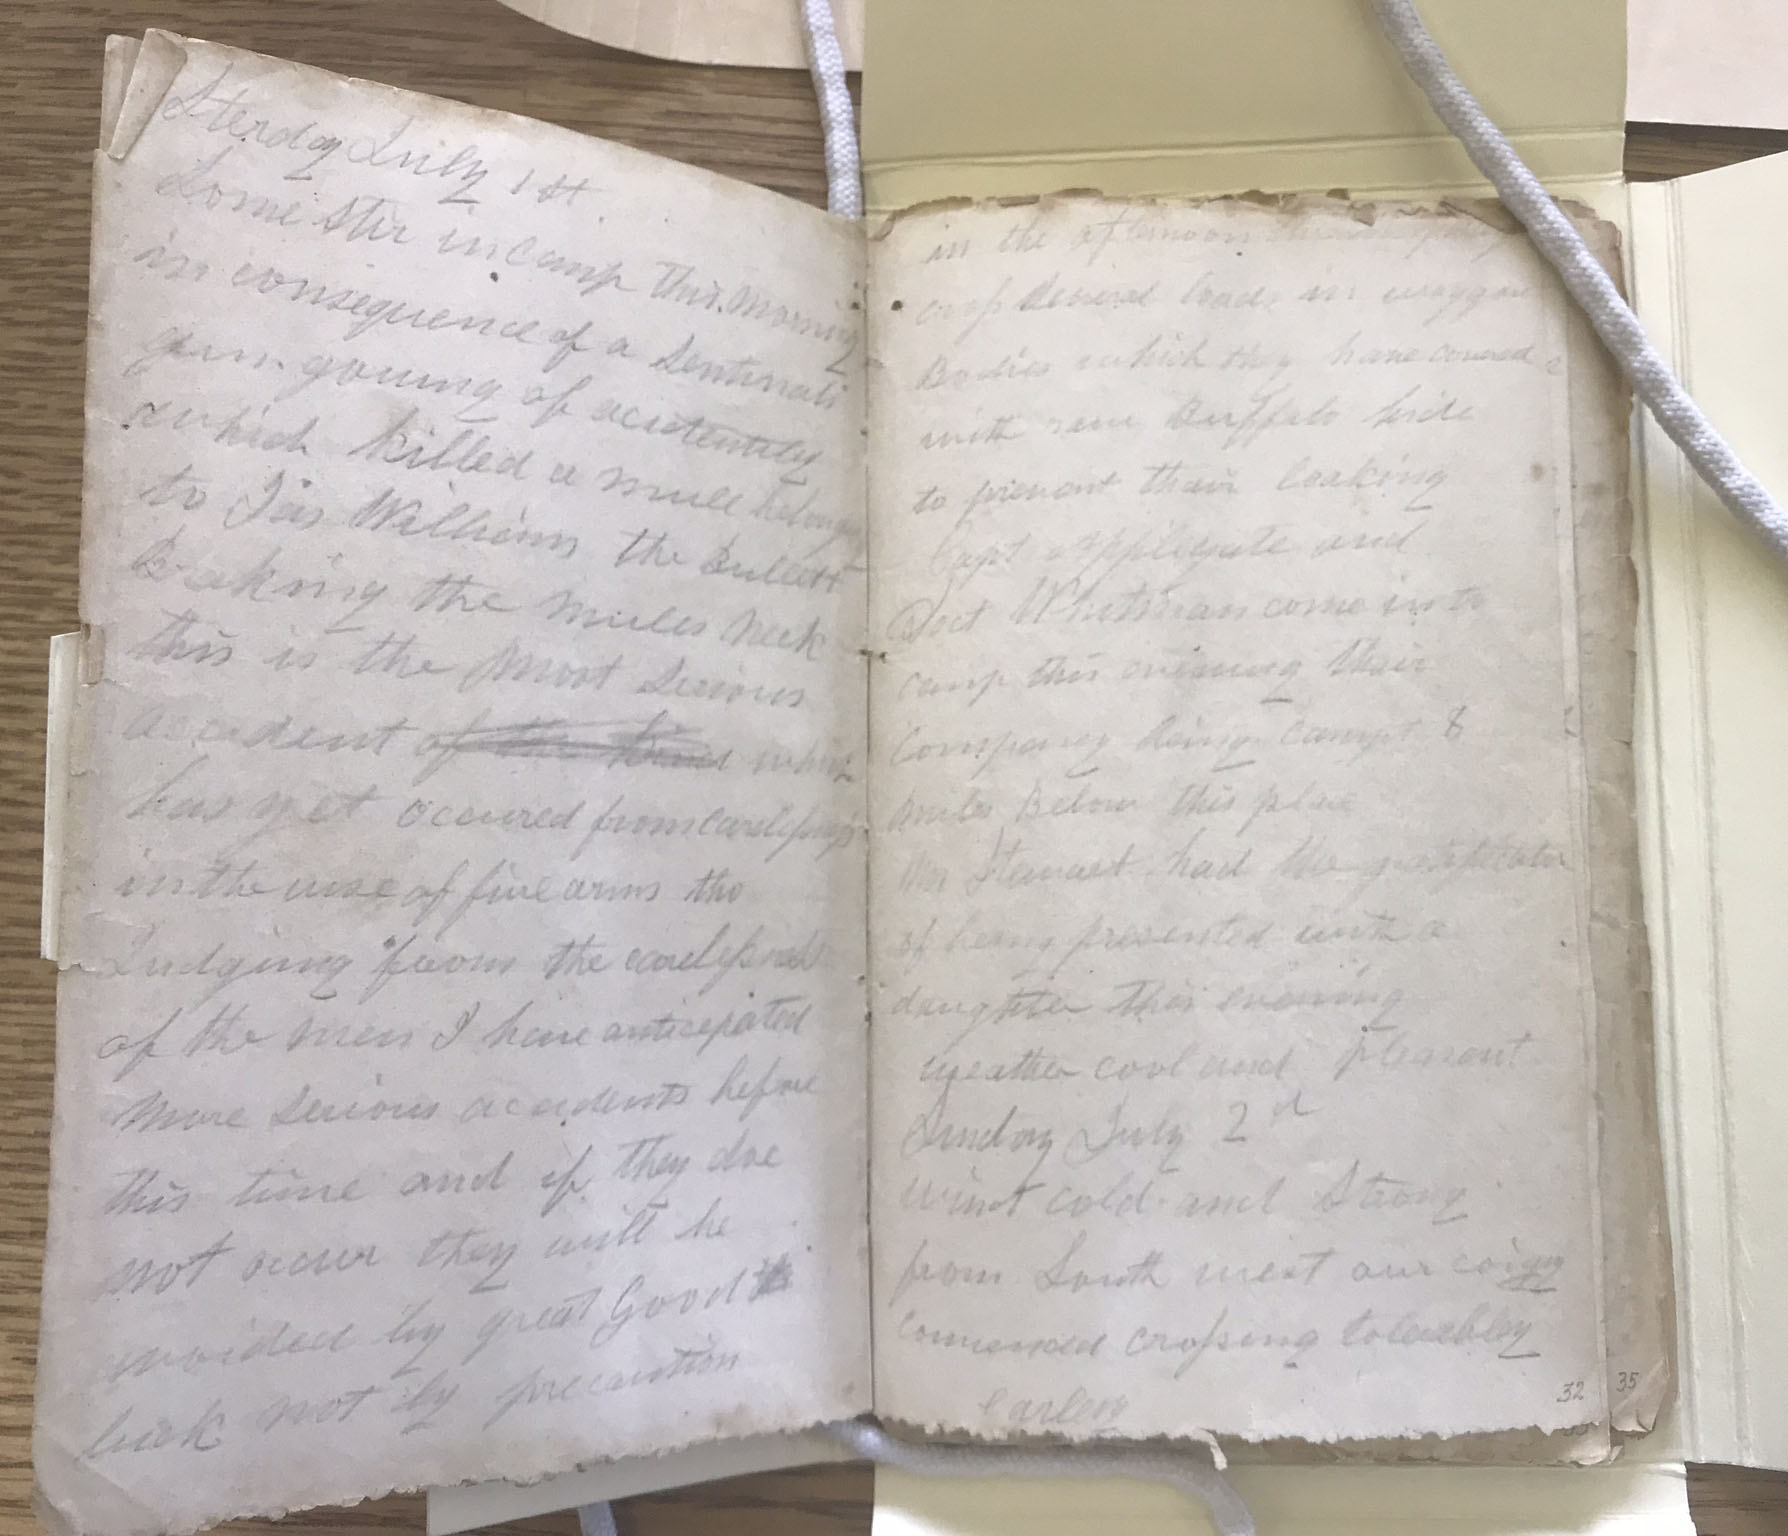 Sterday July 1st.
Some stir in camp this Morning
in consequence of a Sentinals
gun going of acidentaly
which killed a mule belong
to Jas Williams the Bullett
Braking the mules Neck
this is the Most Serious
accident of the kind which
has yet occured from carelessness
in the use of fire arms tho
Judging from the carelessness
of the men I have anticipated
More Serious accidents before
this time and if they doe
not occur they will be
avoided by great Good
luck not by precaution
in the afternoon
cross Several loads in waggon
Bodies which they have covered
with raw Buffalo hide
to prevent thair leaking
Capt Applegate and
Doct Whitman come into
camp this evining thair
Company being campt 8
miles Below this place
Mr Stewart had the gratification
of being presented with a
daughter this evening
weather cool and pleasant
Sunday July 2d
wind cold and Strong
from South west our
comenced crossing tolerabley
earley
32 35